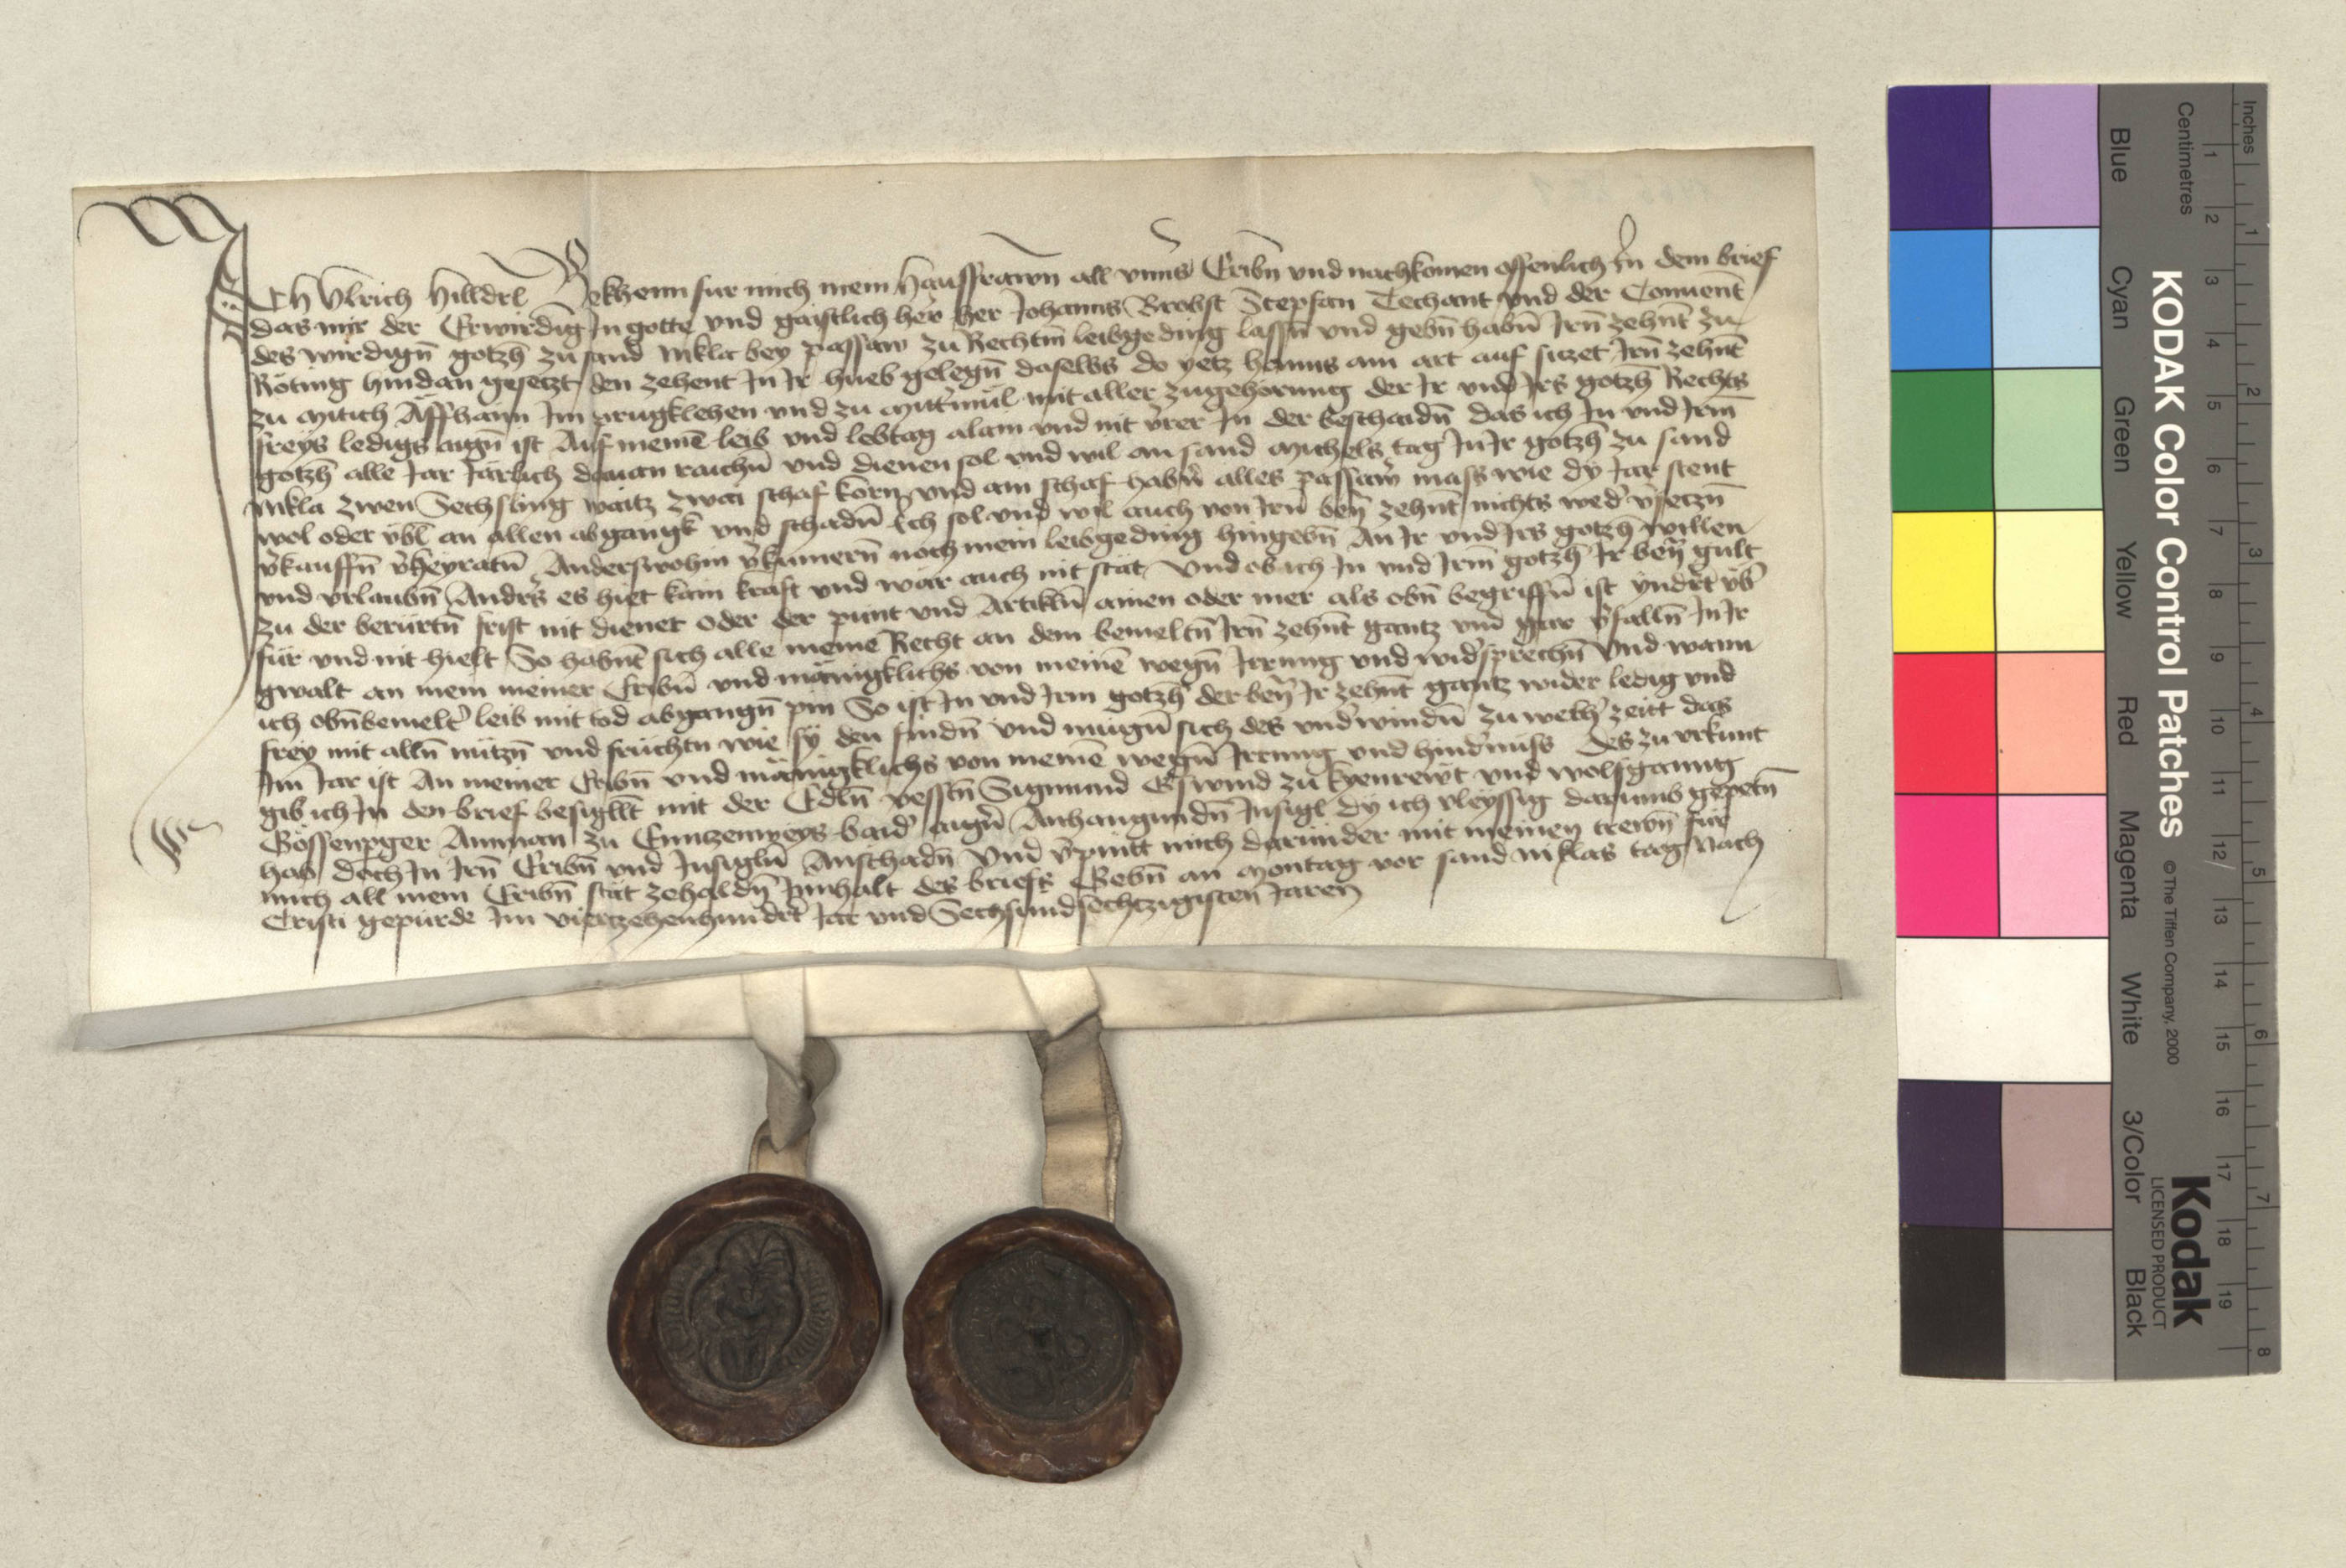 Ich Ulrich Hilldel Bekhenn fur mich mein Haussfrawn all unns Eribn und nachkomen offenlich In dem brief
das mir der Erwirdig In gotte und gaistlich her her Johanns Brobst Stepfan Techant und der Convent
des wirdign gotzh zu sand Nikla bey passaw zu Rechtm leibgeding lassn und gebn habn Irn zehnt zu
Röting hindan gesetzt den zehent In Ir hueb gelegn daselbs do yetz hanns am art auf sitzet Irn zehnt
zu Mitich Äffhaim Im prugklehen und zu mit aller zugehorung der Ir und Irs gotzh Rechts
freys ledigs aign ist Auf meinē leib und lebtag alain und nit In der beschaidn das ich In und Irm
gotzh alle Jar Järlich davan raichn und dienen sol und wil an sand Michels tag In Ir gotzh zu sand
Nikla zwen Sechsling waitz zwai schaf korn und ain schaf habn alles passaw mass wie dy Jar stent
wol oder ubl an allen abgangk und schadn Ich sol und wil auch von Irn ben zehnt nichts wed vsetzn
vkauffn vheyratn Anderswohin vkumern noch mein leibgeding hingebn An Ir und Irs gotzh willen
und urlaubn Anders es hiet kain kraft und war auch nit stat Und ob ich In und Irm gotzh Ir ben gult
zu der berurtn frist nit dienet oder der punt und Artikln ainen oder mer als obn begriffn ist yndrt ub
für und nit hielt So habnt sich alle meine Recht an dem bemeltn Irn zehnt gantz und gar vfalln In Ir
gwalt an mein meiner Eribn und mänigklichs von meinē wegn Irrung und widsprechn Und wann
ich obnbemelt leib mit tod abgangn pin So ist In und Irm gotzh der ben Ir zehnt gantz wider ledig und
frey mit alln nützn und früchtn wie sy den findn und mugn sich des undwindn zu welh zeitt das
Im Jar ist An meiner Eribn und mänigklichs von meinē wegn Irrung und hindnuss Des zu urkunt
gib ich In den brief besigllt mit der Edln vesstn Sigmund zu und wolfganng
Amman zu baid aign Anhangundn Insigl dy ich vleyssig darumb gepetn
hab doch In Irn Eribn und Insigln Anschadn Und vpintt mich darunder mit meinen trewn für
mich all mein Eribn stät zehaldn Innhalt des briefs Gebn an Montag vor sand Niklas tag Nach
Cristi gepurde Im viertzehenhundrt Jar und Sechsundsechtzigisten Jaren
KODAK Color Control Patches © The Tiffen Company, 2000
Kodak
LICENSED PRODUCT
Blue Cyan Green Yellow Red Magenta White 3/Color Black
Inches 1 2 3 4 5 6 7 8
Centimetres 1 2 3 4 5 6 7 8 9 10 11 12 13 14 15 16 17 18 19